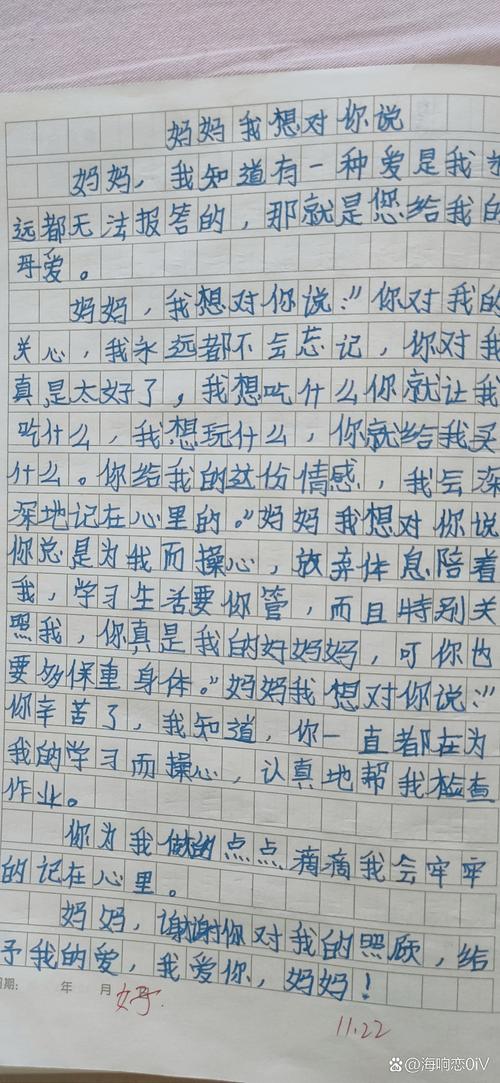 妈妈我想对你说
妈妈，我知道有一种爱是我永
远都无法报答的，那就是您给我的
母爱。
妈妈，我想对你说："你对我的
关心，我永远都不会忘记，你对我
真是太好了，我想吃什么你就让我
吃什么，我想玩什么，你就给我买
什么。你给我的这份情感，我会深
深地记在心里的。"妈妈我想对你说
你总是为我而操心，放弃体息陪着
我，学习生活要你管，而且特别关
照我，你真是我的好妈妈，可你也
要多保重身体。"妈妈我想对你说："
你辛苦了，我知道，你一直都在为
我的学习而操心，认真地帮我检查
作业。
你为我做的点点滴滴我会牢牢
的记在心里。
妈妈，谢谢你对我的照顾，给
予我的爱，我爱你，妈妈！
日期： 年 月
好
11.22
海响恋0iV